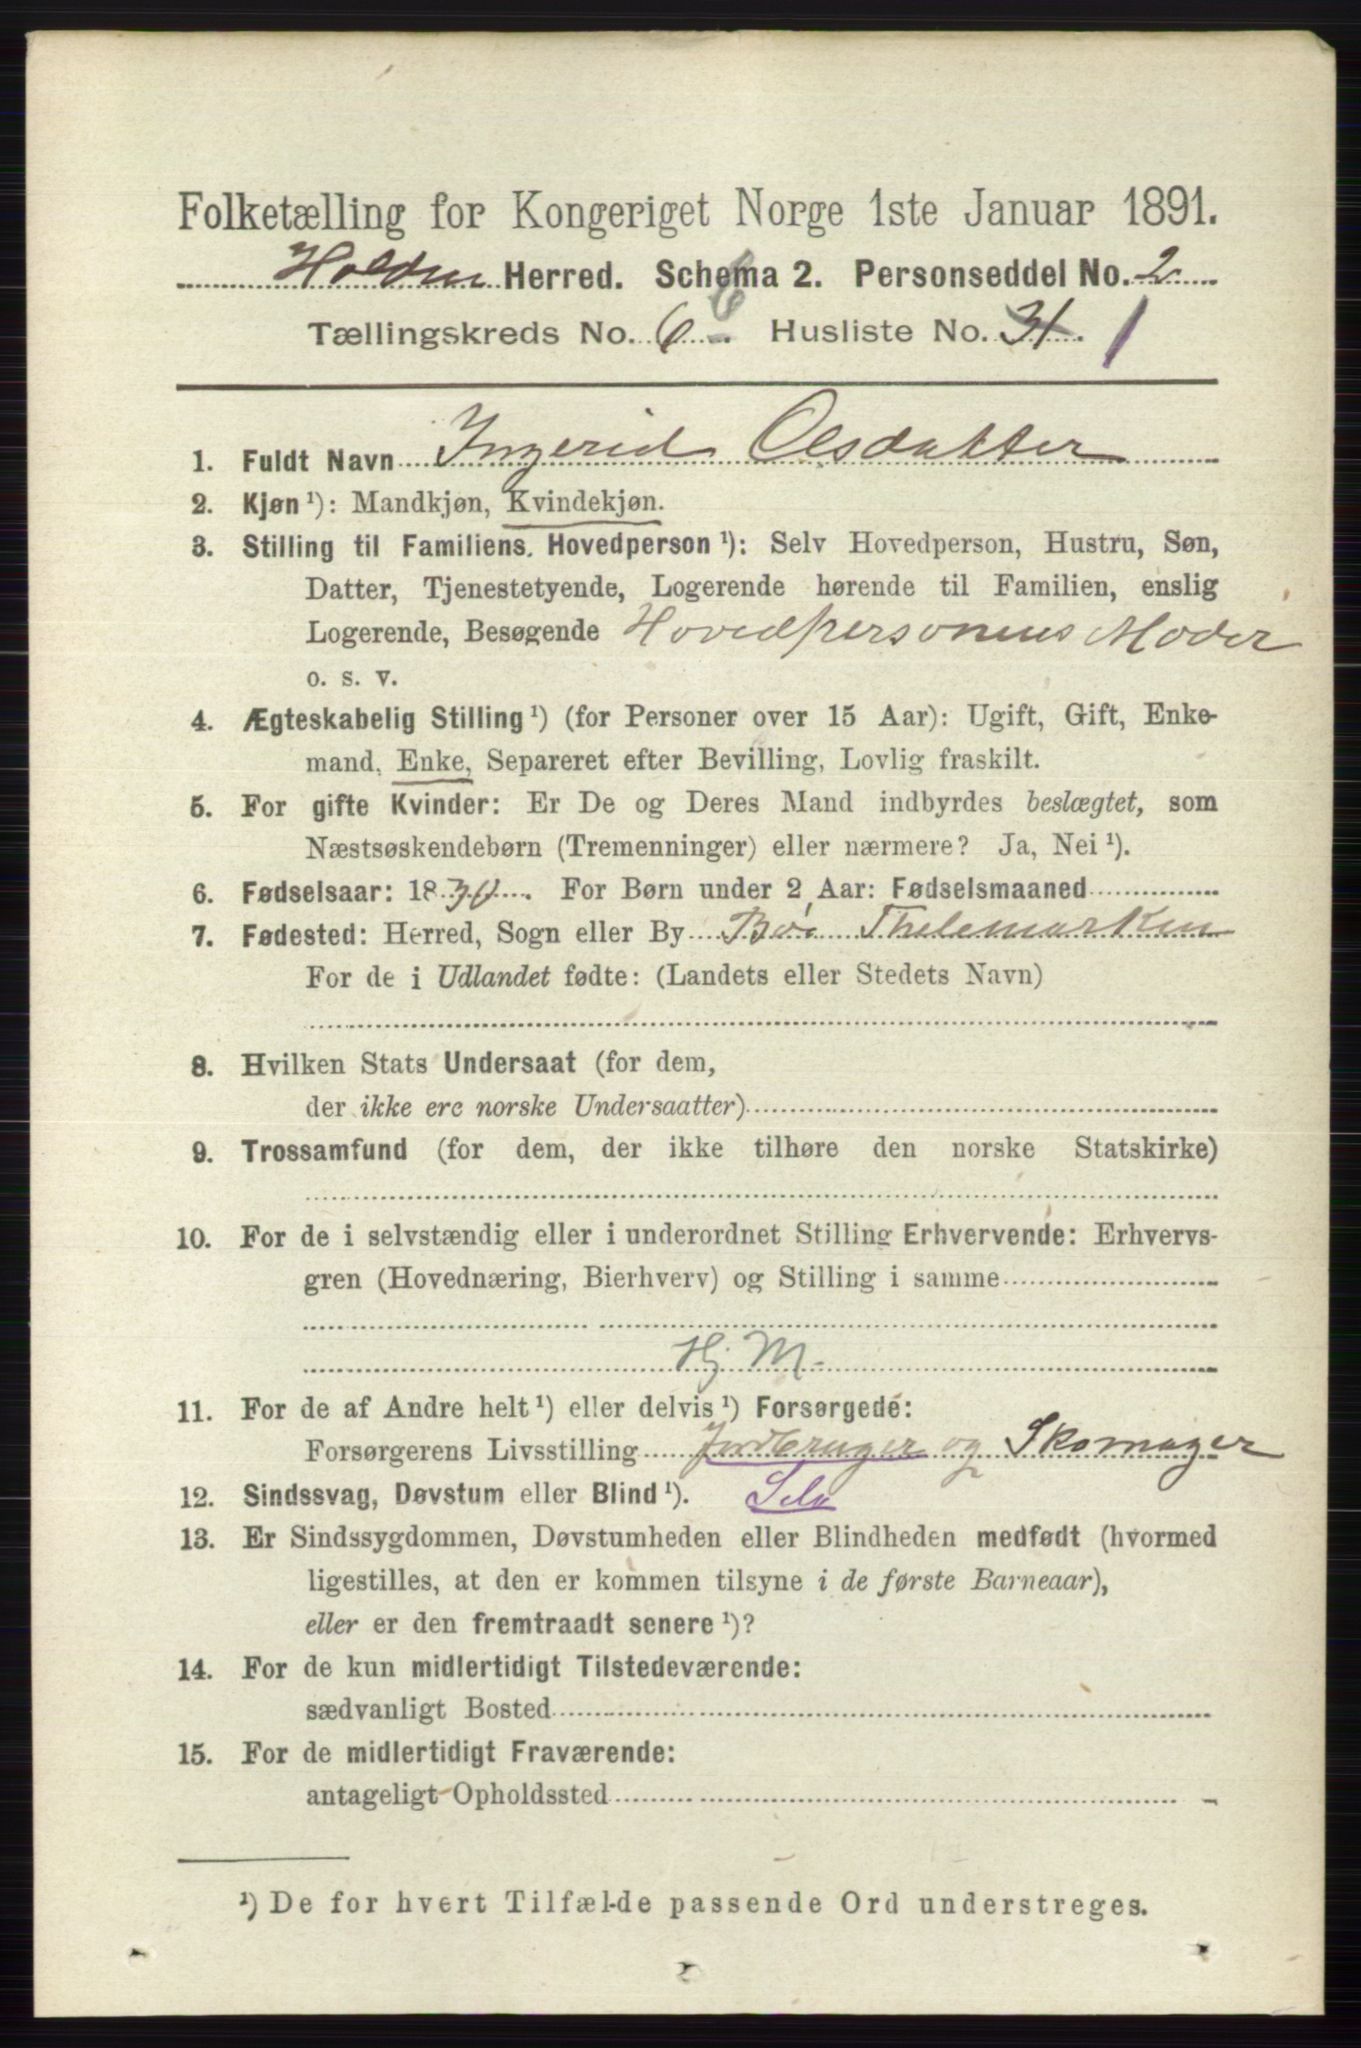 Folketælling for Kongeriget Norge 1ste Januar 1891.
Holden Herred. Schema 2. Personseddel No. 2
Tællingskreds No. 6 6. Husliste No. 31. 1
1. Fuldt Navn Ingerid Olsdatter
2. Kjøn ¹): Mandkjøn, Kvindekjøn.
3. Stilling til Familiens Hovedperson ¹): Selv Hovedperson, Hustru, Søn,
Datter, Tjenestetyende, Logerende hørende til Familien, enslig
Logerende, Besøgende Hovedpersonens Moder
o. s. v.
4. Ægteskabelig Stilling ¹) (for Personer over 15 Aar): Ugift, Gift, Enke-
mand, Enke, Separeret efter Bevilling, Lovlig fraskilt.
5. For gifte Kvinder: Er De og Deres Mand indbyrdes beslægtet, som
Næstsøskendebørn (Tremenninger) eller nærmere? Ja, Nei ¹).
6. Fødselsaar: 1830. For Børn under 2 Aar: Fødselsmaaned
7. Fødested: Herred, Sogn eller By Bø Thelemarken
For de i Udlandet fødte: (Landets eller Stedets Navn)
8. Hvilken Stats Undersaat (for dem,
der ikke ere norske Undersaatter)
9. Trossamfund (for dem, der ikke tilhøre den norske Statskirke)
10. For de i selvstændig eller i underordnet Stilling Erhvervende: Erhvervs-
gren (Hovednæring, Bierhverv) og Stilling i samme
Hj. M.
11. For de af Andre helt ¹) eller delvis ¹) Forsørgede:
Forsørgerens Livsstilling Jordbruger og Skomager
12. Sindssvag, Døvstum eller Blind ¹). Selv
13. Er Sindssygdommen, Døvstumheden eller Blindheden medfødt (hvormed
ligestilles, at den er kommen tilsyne i de første Barneaar),
eller er den fremtraadt senere ¹)?
14. For de kun midlertidigt Tilstedeværende:
sædvanligt Bosted
15. For de midlertidigt Fraværende:
antageligt Opholdssted
¹) De for hvert Tilfælde passende Ord understreges.